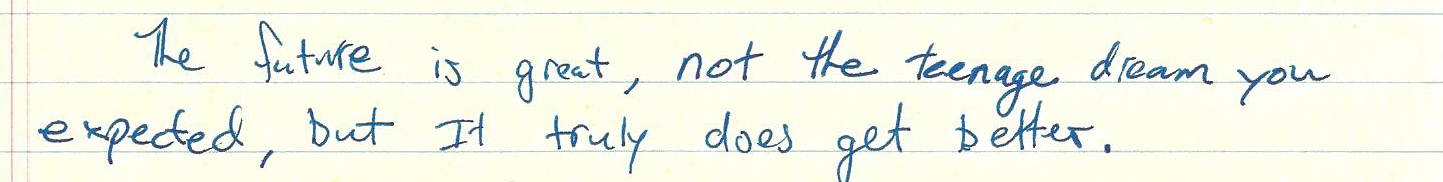 The future is great, not the teenage dream you
expected, but It truly does get better.